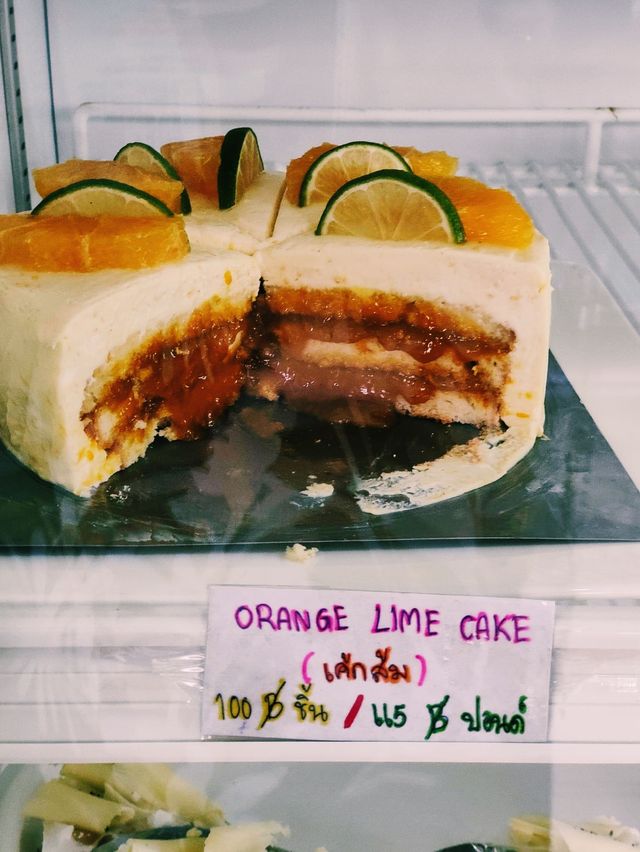 ORANGE LIME CAKE
(เค้กส้ม)
100 ฿ ชิ้น / 115 ฿ ปอนด์